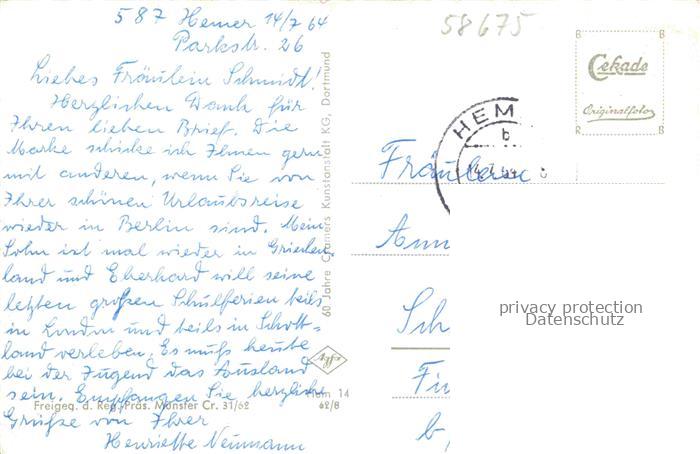 587 Hemer 14/7 64
Parkstr. 26
Liebes Fräulein Schmidt!
Herzlichen Dank für
Ihren lieben Brief. Die
Marke schicke ich Ihnen gern
mit anderen, wenn Sie von
Ihrer schönen Urlaubsreise
wieder in Berlin sind. Mein
Sohn ist mal wieder in Griechen
land und Eberhard will seine
letzten großen Schulferien teils
in London und teils in Schott=
land verleben. Es muß heute
bei der Jugend das Ausland
sein. Empfangen Sie herzliche
Grüße von Ihrer
Henriette Neumann
Freigeg. d. Reg. Präs. Münster Cr. 31/62
Hem 14
62/8
Agfa
60 Jahre Cramers Kunstanstalt KG, Dortmund
58675
B B
Cekade
Originalfoto
R R
HEM
b
Fräulein
Ann
Sch
privacy protection
Datenschutz
b,